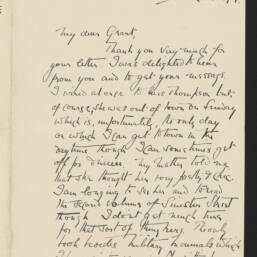 My dear Grant,
Thank you very much for
your letter. I was delighted to hear
from you and to get your message.
I wired at once to Miss Thompson but,
of course, she was out of town on Sunday
which is, unfortunately, the only day
on which I can get to town in the
daytime though I can sometimes get
off for dinner. My mother told me
that she thought her very pretty &
I am longing to see her and to read
the second volume of Sinister Street
though I don't get much time
for that sort of thing here. The only
book besides military manuals which